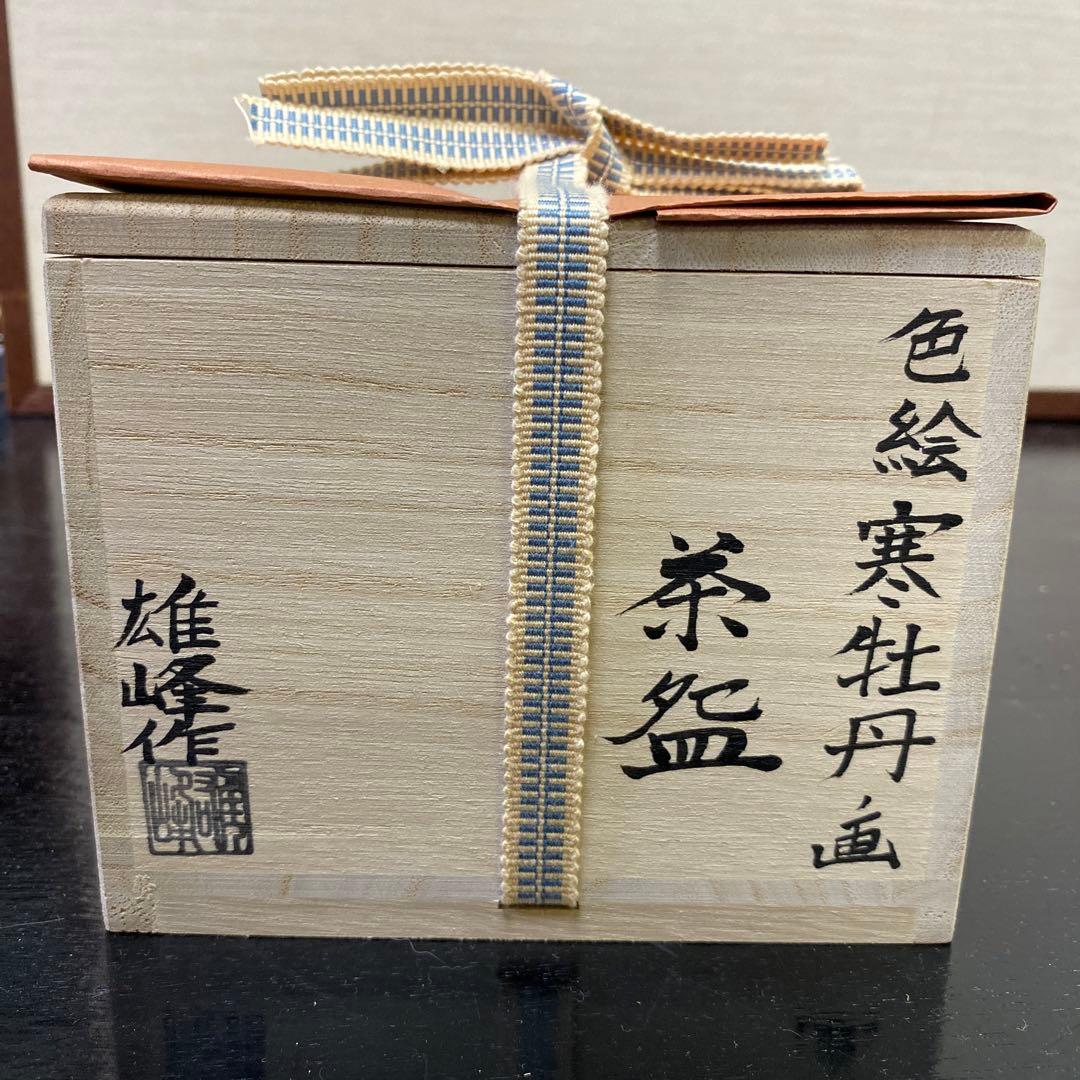 色絵寒牡丹画
茶盌
雄峰作
雄峰